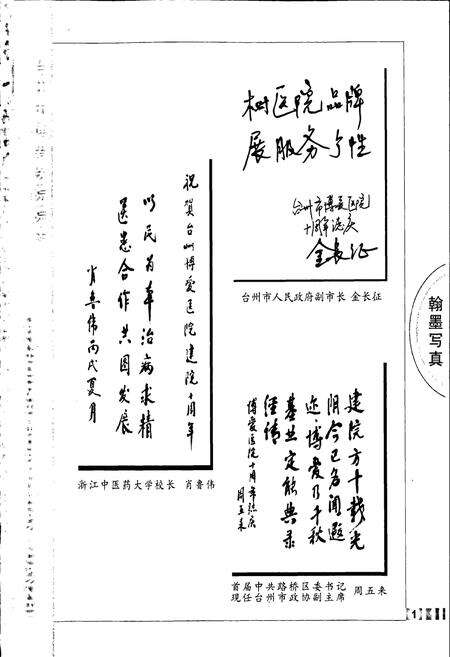 树医院品牌
展服务个性
台州市博爱医院
十周年志庆
金长征
台州市人民政府副市长 金长征
翰墨写真
祝贺台州博爱医院建院十周年
以民为本治病求精
医患合作共图发展
肖鲁伟丙戌夏月
浙江中医药大学校长 肖鲁伟
建院方十载光
阴今已名闻遐
迩博爱乃千秋
基业定能典录
经清
博爱医院十周年志庆
周五来
首届中共路桥区委书记
现任台州市政协副主席 周五来
1